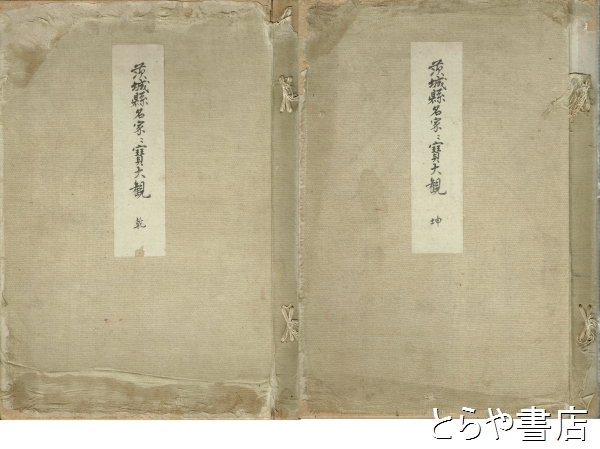 茨城縣名家々寶大観
乾
茨城縣名家々寶大観
坤
とらや書店